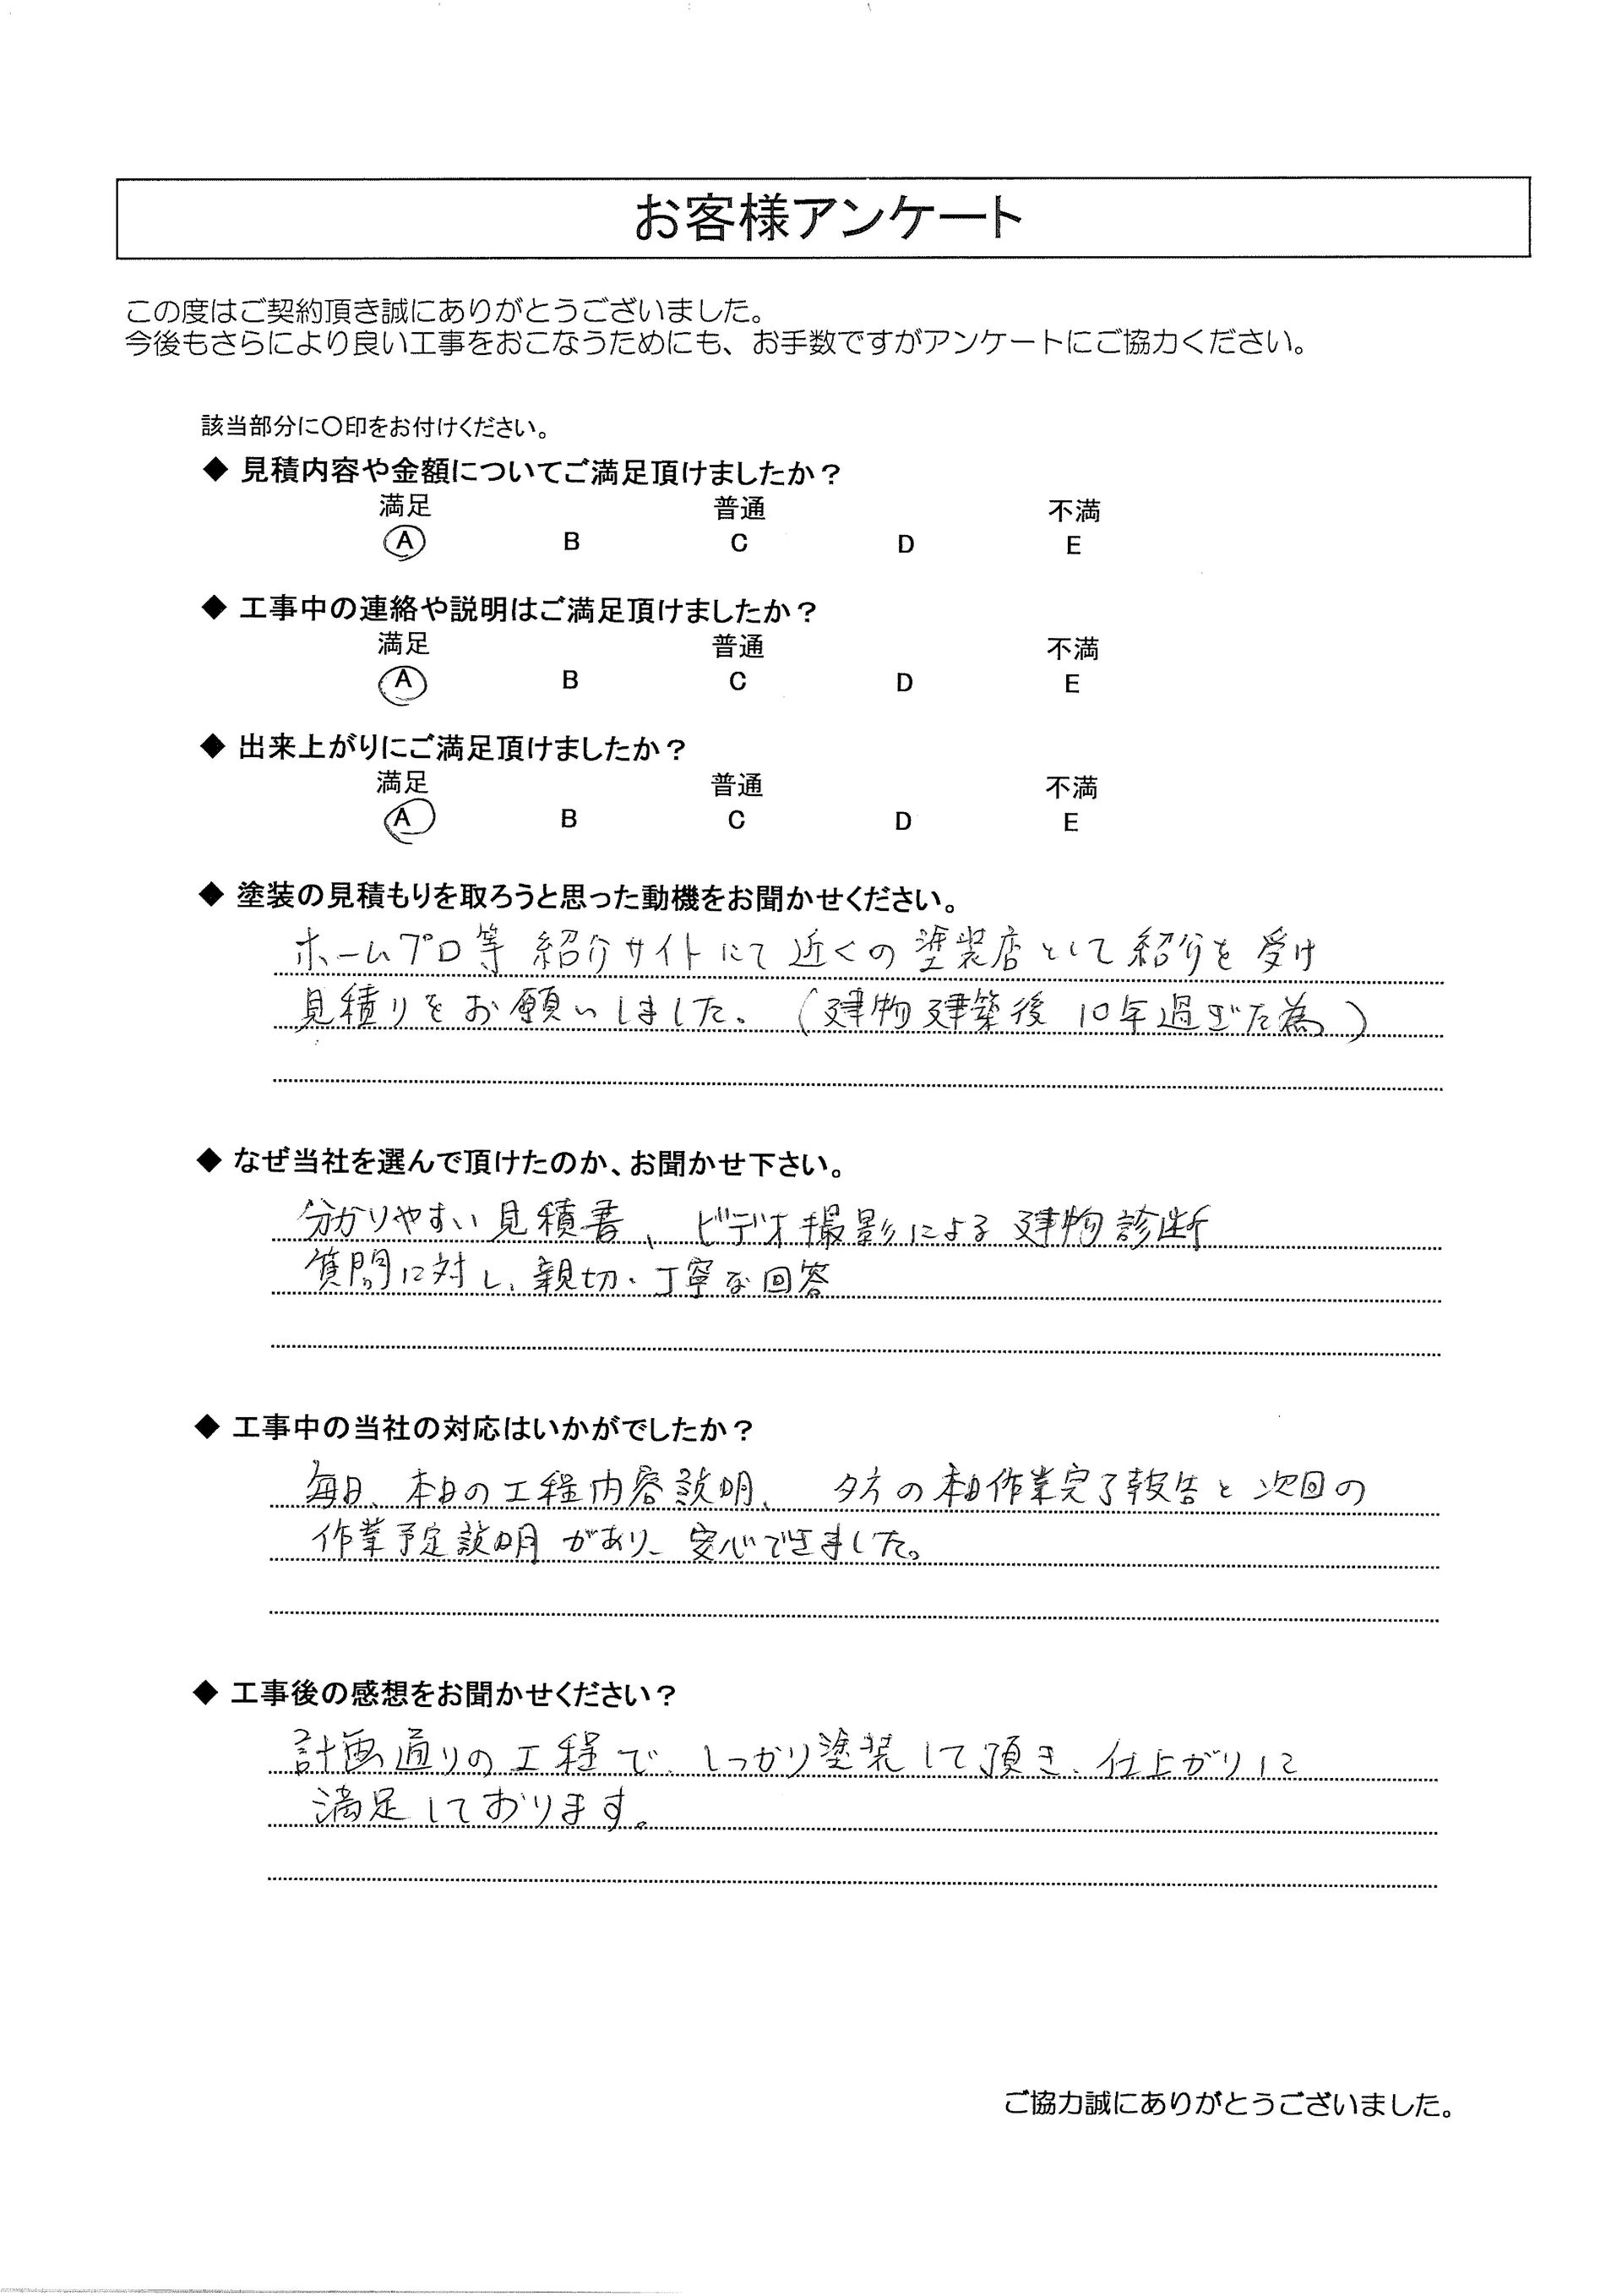 お客様アンケート
この度はご契約頂き誠にありがとうございました。
今後もさらにより良い工事をおこなうためにも、お手数ですがアンケートにご協力ください。
該当部分に〇印をお付けください。
◆ 見積内容や金額についてご満足頂けましたか？
満足 普通 不満
A B C D E
◆ 工事中の連絡や説明はご満足頂けましたか？
満足 普通 不満
A B C D E
◆ 出来上がりにご満足頂けましたか？
満足 普通 不満
A B C D E
◆ 塗装の見積もりを取ろうと思った動機をお聞かせください。
ホームプロ等 紹介サイトにて近くの塗装店として紹介を受け
見積りをお願いしました。（建物建築後10年過ぎた為）
◆ なぜ当社を選んで頂けたのか、お聞かせ下さい。
分かりやすい見積書、ビデオ撮影による建物診断
質問に対し、親切・丁寧な回答
◆ 工事中の当社の対応はいかがでしたか？
毎日、本日の工程内容説明、夕方の本日作業完了報告と次回の
作業予定説明があり、安心できました。
◆ 工事後の感想をお聞かせください？
計画通りの工程で、しっかり塗装して頂き、仕上がりに
満足しております。
ご協力誠にありがとうございました。